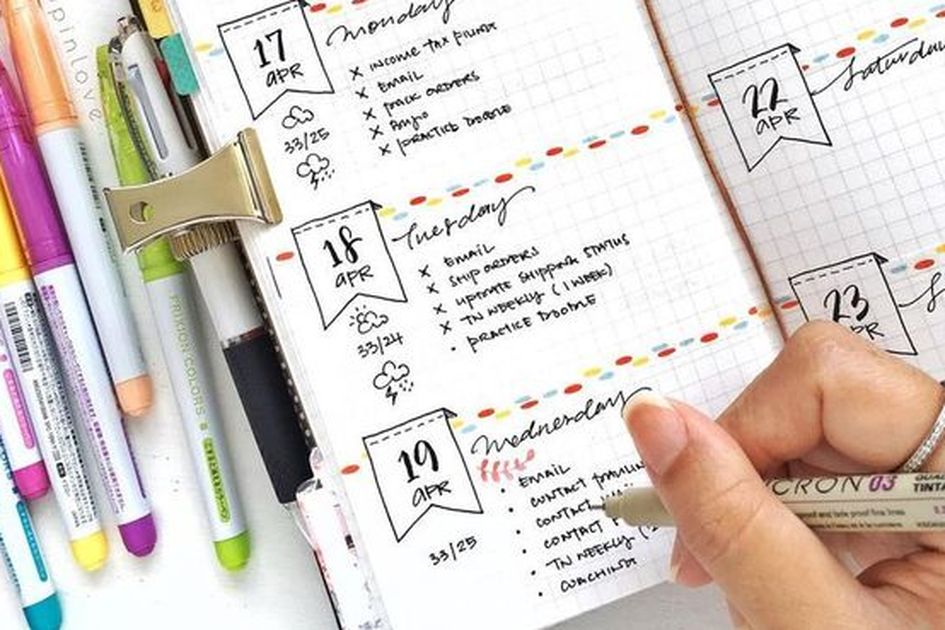 17
APR
Monday
x INCOME TAX FILING
x EMAIL
x PACK ORDERS
x BUJO
x PRACTICE DOODLE
33/25
18
APR
Tuesday
x EMAIL
x SHIP ORDERS
x UPDATE SHIPPING STATUS
x TN WEEKLY (1 WEEK)
• PRACTICE DOODLE
33/24
19
APR
Wednesday
• EMAIL
• CONTACT
• CONTACT
• CONTACT
• TN WEEKLY
• COACHING
33/25
22
APR
Saturday
23
PR
pinlove
FRIXION COLORS
CRON 03